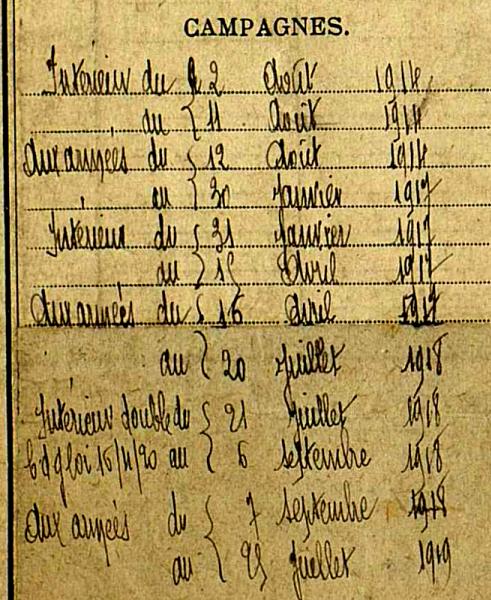 CAMPAGNES.
Intérieur du { 2 Août 1914
au { 11 Août 1914
Aux armées du { 12 Août 1914
au { 30 Janvier 1917
Intérieur du { 31 Janvier 1917
au { 15 Avril 1917
Aux armées du { 16 Avril 1917
au { 20 Juillet 1918
Intérieur double du { 21 Juillet 1918
loi 15/4/20 au { 6 septembre 1918
Aux armées du { 7 septembre 1918
au { 23 Juillet 1919